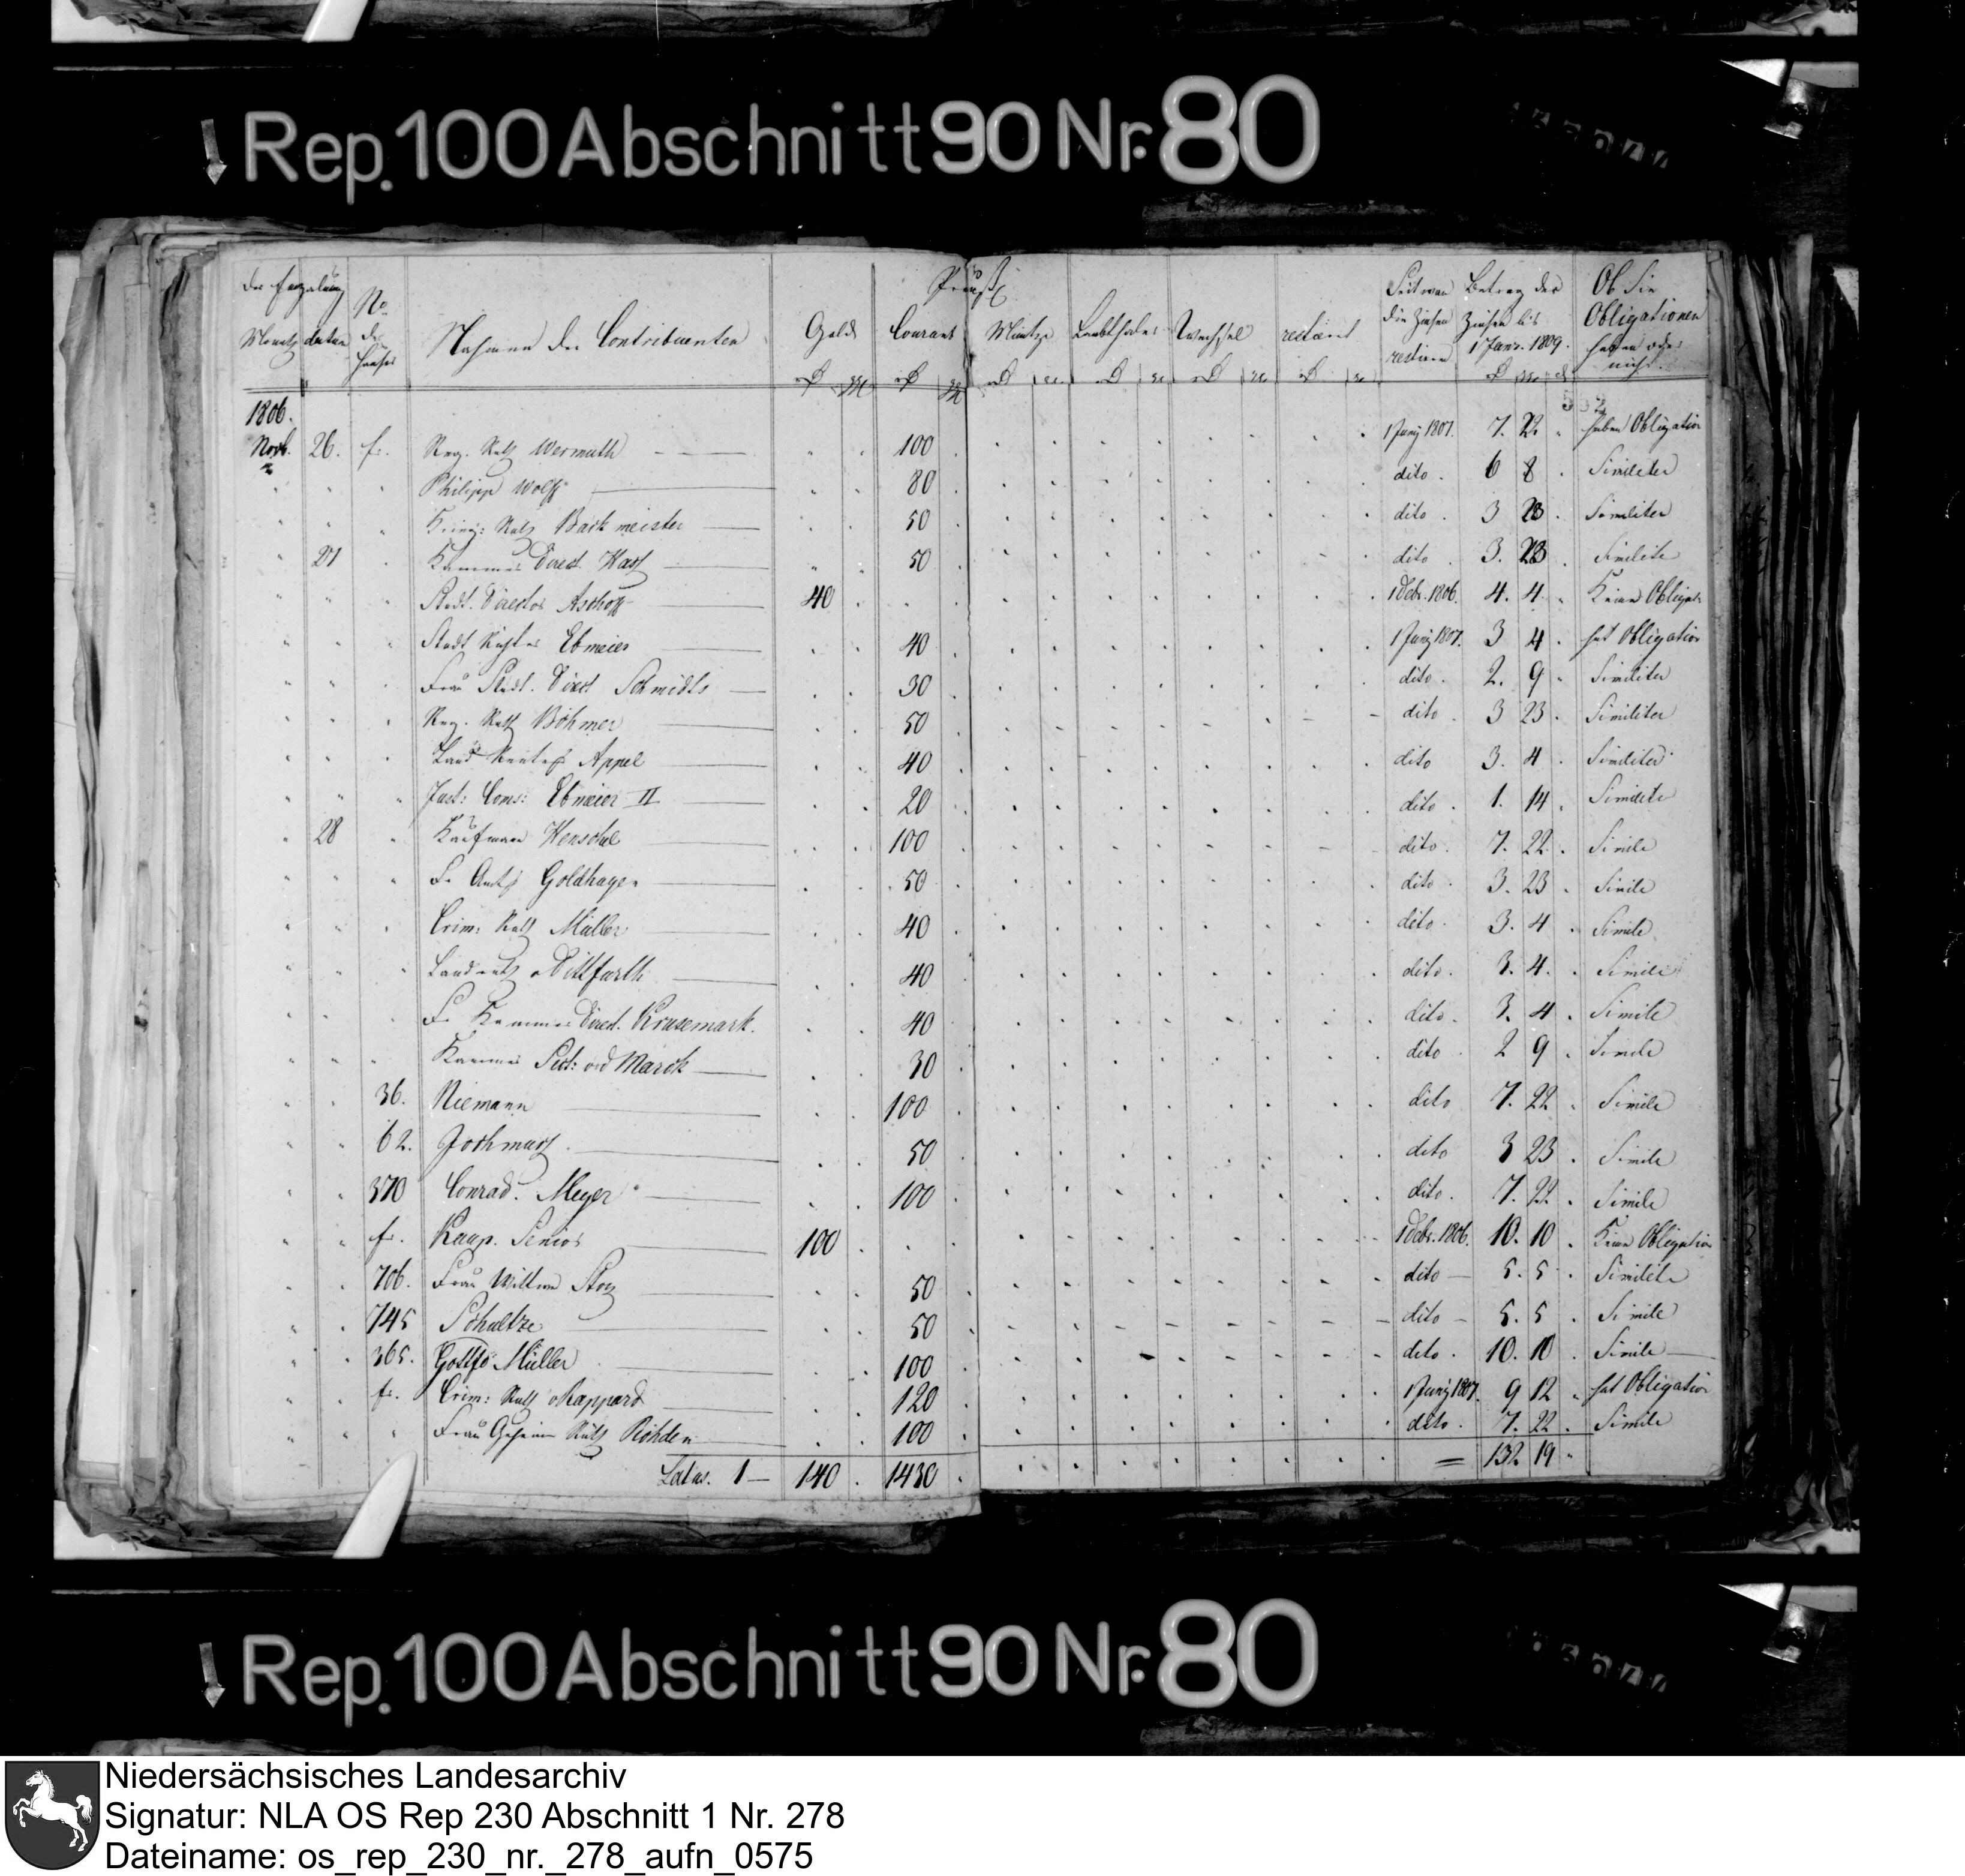 Rep. 100 Abschnitt 90 Nr. 80
Der Einzalung
Monats datum
No. des Hauses
Nahmen der Contribuenten
Golde
Preuß
Courant
Müntze
Laubthaler
Wechsel
restant
Seit wan die Zinsen restiren
Betrag der Zinsen bis 1 Janr. 1809.
Ob Sie Obligationen haben oder nicht.
1806.
Novb. 26. fr. Reg. Rath Wermuth 100 1 Junij 1807. 7. 22 haben Obligation
Philipp Wolff 80 dito 6 8 Similiter
Rath Backmeister 50 dito 3 23 Similiter
27 Kammer Direct. Hass 50 dito 3. 23 Similiter
Stadt Director Aschoff 40 1 Decbr. 1806. 4. 4 Keine Obligat.
Stadt Richter Ebmeier 40 1 Junij 1807. 3 4 hat Obligation
Frau Stadt. Direct Schmidts 30 dito 2. 9 Similiter
Reg. Rath Böhmer 50 dito 3 23 Similiter
Land Rentm. Appel 40 dito 3. 4 Similiter
Just: Coms: Ebmeier II 20 dito 1. 14 Similiter
28 Kaufmann Henschel 100 dito 7. 22 Simile
Fr Amtm Goldhagen 50 dito 3. 23 Simile
Crim: Rath Müller 40 dito 3. 4 Simile
Landrath v Dittfurth 40 dito 3. 4. Simile
Fr Kammer Direct. Krusemark. 40 dito 3. 4 Simile
Kammer Sect: v d Marck 30 dito 2 9 Simile
36. Niemann 100 dito 7. 22 Simile
62. Jochmus 50 dito 3 23 Simile
370 Conrad. Meyer 100 dito 7. 22 Simile
fr. Kaup. Senior 100 1 Decbr. 1806. 10. 10 Keine Obligation
706. Frau Wittwe Stoy 50 dito 5. 5 Similiter
745 Schultze 50 dito 5. 5 Simile
365. Gottfr. Müller 100 dito 10. 10 Simile
fr. Crim: Rath v Rappard 120 1 Junij 1807. 9 12 hat Obligation
Frau Geheime Räth Röhden 100 dito 7. 22 Simile
Latus. 1 — 140 1430 = 132 19
Rep. 100 Abschnitt 90 Nr. 80
Niedersächsisches Landesarchiv
Signatur: NLA OS Rep 230 Abschnitt 1 Nr. 278
Dateiname: os_rep_230_nr._278_aufn_0575